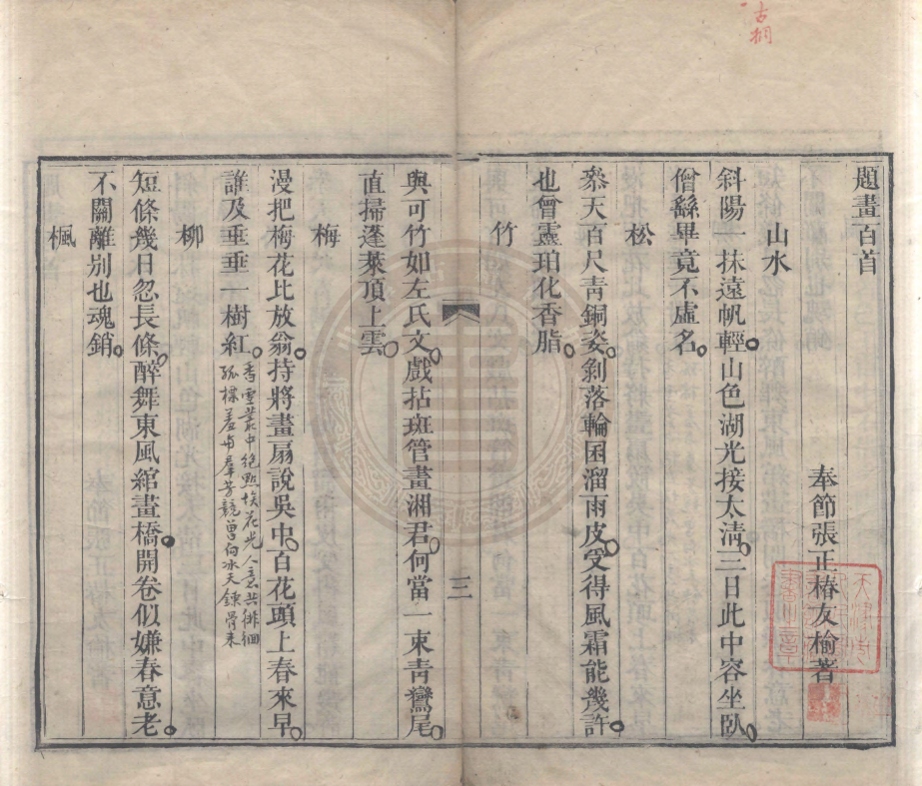 古桐
題畫百首
奉節張正椿友榆著
山水
斜陽一抹遠帆輕山色湖光接太清三日此中容坐臥
僧繇畢竟不虛名
松
叅天百尺青銅姿剝落輪囷溜雨皮受得風霜能幾許
也曾靈珀化香脂
竹
與可竹如左氏文戲拈班管畫湘君何當一束青鸞尾
直掃蓬萊頂上雲
三
梅
漫把梅花比放翁持將畫扇說吳中百花頭上春來早
誰及垂垂一樹紅
香雪叢中絕點埃花光人意共徘徊
孤標羞與羣芳競曾向冰天鍊骨來
柳
短條幾日忽長條醉舞東風綰畫橋開卷似嫌春意老
不關離別也魂銷
楓